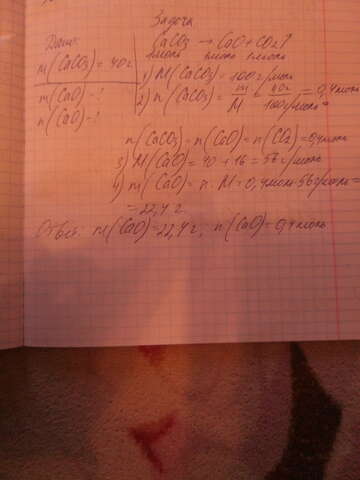 Задача
Дано:
m(CaCO3) = 40г
m(CaO) - ?
n(CaO) - ?
CaCO3 → CaO + CO2↑
1моль 1моль 1моль
1) M(CaCO3) = 100г/моль
2) n(CaCO3) = m/M = 40г/100г/моль = 0,4моль
n(CaCO3) = n(CaO) = n(CO2) = 0,4моль
3) M(CaO) = 40 + 16 = 56г/моль
4) m(CaO) = n·M = 0,4моль·56г/моль =
= 22,4 г
Ответ: m(CaO) = 22,4 г; n(CaO) = 0,4моль